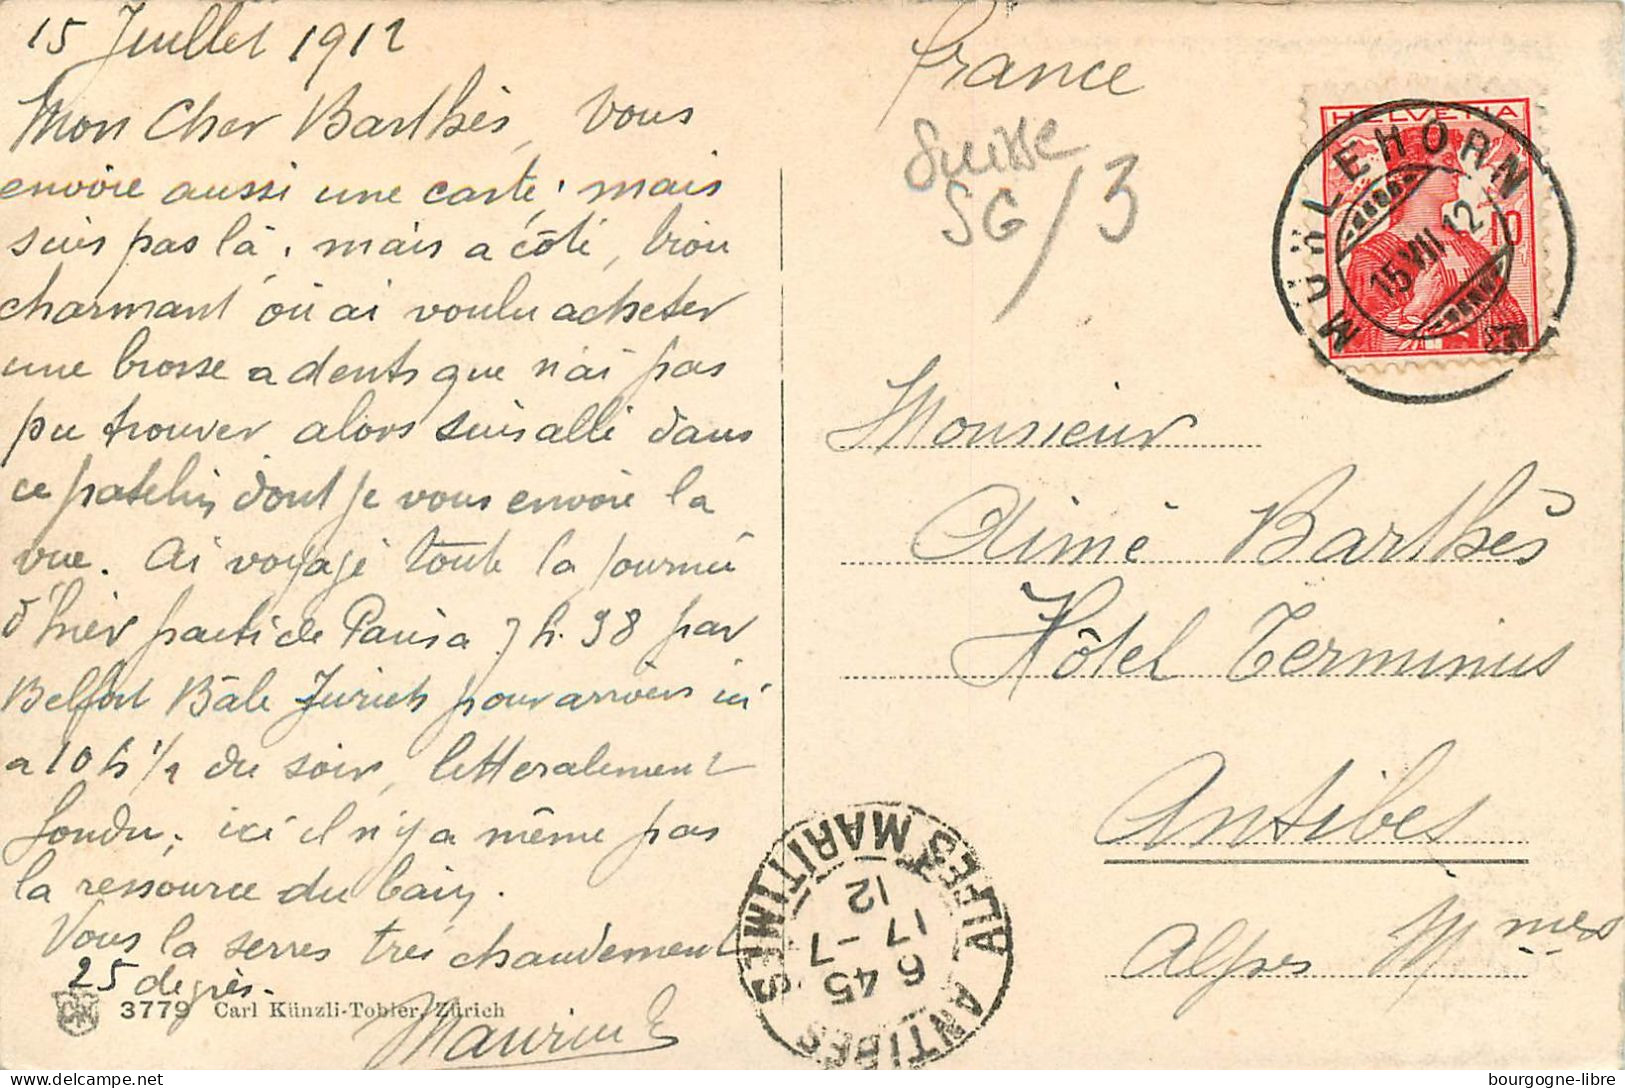 15 Juillet 1912
Mon Cher Barthès, Vous
envoie aussi une carte, mais
suis pas là, mais a côté, trou
charmant où ai voulu acheter
une brosse a dents que n'ai pas
pu trouver alors suis allé dans
ce patelin dont je vous envoie la
vue. Ai voyagé toute la journée
d'hier parti de Paris a 7 h. 38 par
Belfort Bâle Zurich pour arriver ici
a 10 h 1/2 du soir, litteralement
fondu, ici il n'y a même pas
la ressource du bain.
Vous la serres très chaudement
25 degrés.
Maurice
3779 Carl Künzli-Tobler, Zürich
France
Suisse
SG/3
HELVETIA
10
MÜHLEHORN
15 VII 12
Monsieur
Aimé Barthès
Hôtel Terminus
Antibes
Alpes Mmes
ANTIBES
ALPES MARITIMES
6 45
17 - 7
12
bourgogne-libre